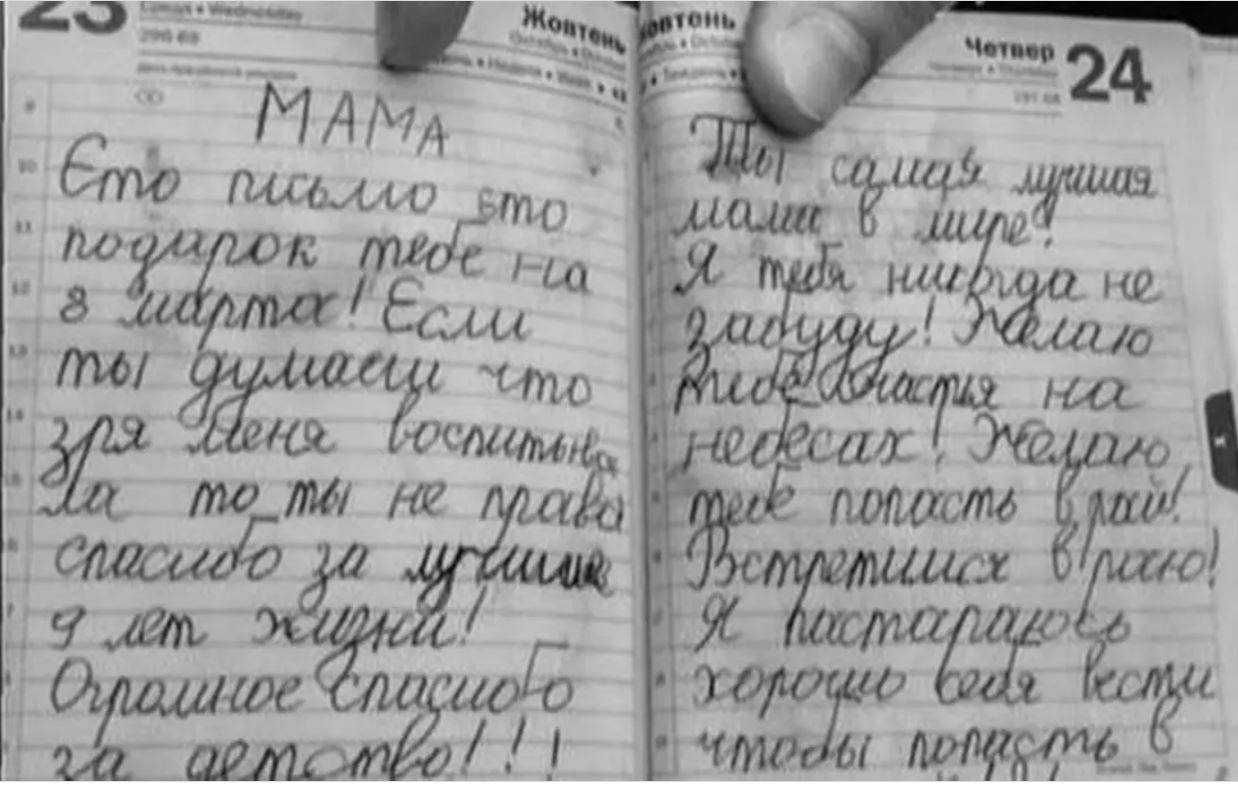 23
Середа • Wednesday
296-69
Жовтень
МАМА
Єто письмо єто
подарок тебе на
8 марта! Если
ты думаеш что
зря меня воспитыва
ла то ты не права
спасибо за лучшие
9 лет жизни!
Огромное спасибо
за детство!!!
Жовтень
Четвер 24
Четверг • Thursday
297-68
Ты самая лучшая
мама в мире!
Я тебя никогда не
забуду! Желаю
тебе счастья на
небесах! Желаю
тебе попасть в рай!
Встретимся в раю!
Я пастараюсь
хорошо себя вести
чтобы попасть в